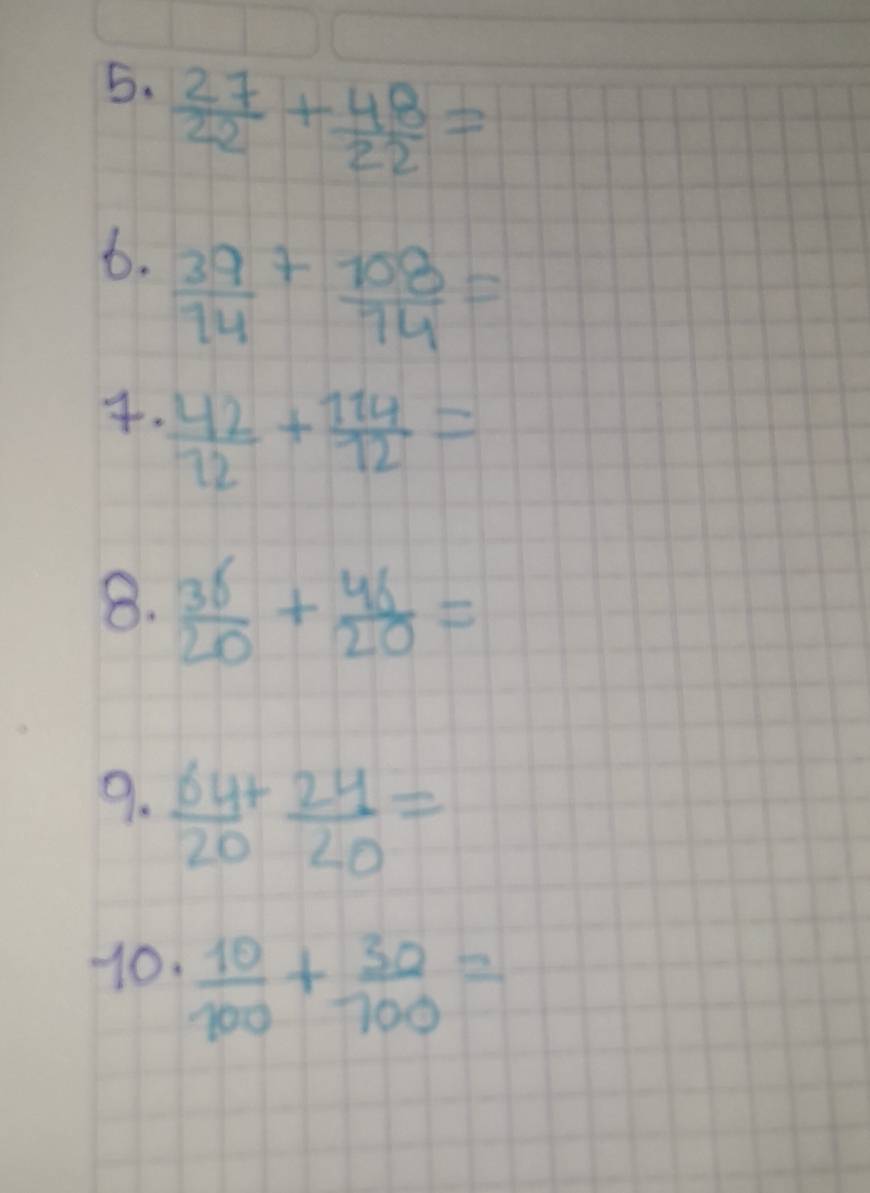 5. 27/22 + 48/22 =
6. 39/14 + 108/14 =
7. 42/12 + 114/12 =
8. 36/20 + 46/20 =
9. 64/20 + 24/20 =
10. 10/100 + 30/100 =